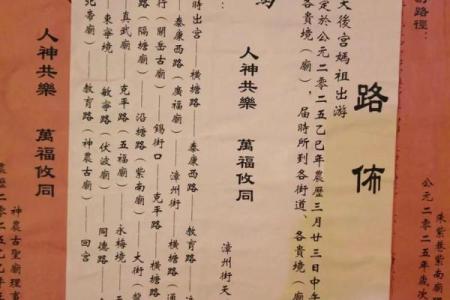 路徑：
朱紫巷紫南廟理
公元二零二五年歲次
路佈
天後宮媽祖出游
定於公元二零二五乙巳年農歷三月廿三日中午
各貴境（廟），屆時所到各街道、各貴境（廟
漳州街天
人神共樂 萬福攸同
時出宮——橫塘路——教育路
泰康西路（廣福廟）漳州街——橫塘路（通
行（關岳古廟）——錫街口——克平路——橫塘路
路（隔塘廟）——沿塘路（紫南廟）——大街（
真武廟）——克平路（五福廟）——永梅境——
東寧境——敏寧路（伏波廟）——同德路
北帝廟）——教育路（神農古廟）——回宮
人神共樂 萬福攸同
神農古聖廟理事
農歷二零二五乙巳年